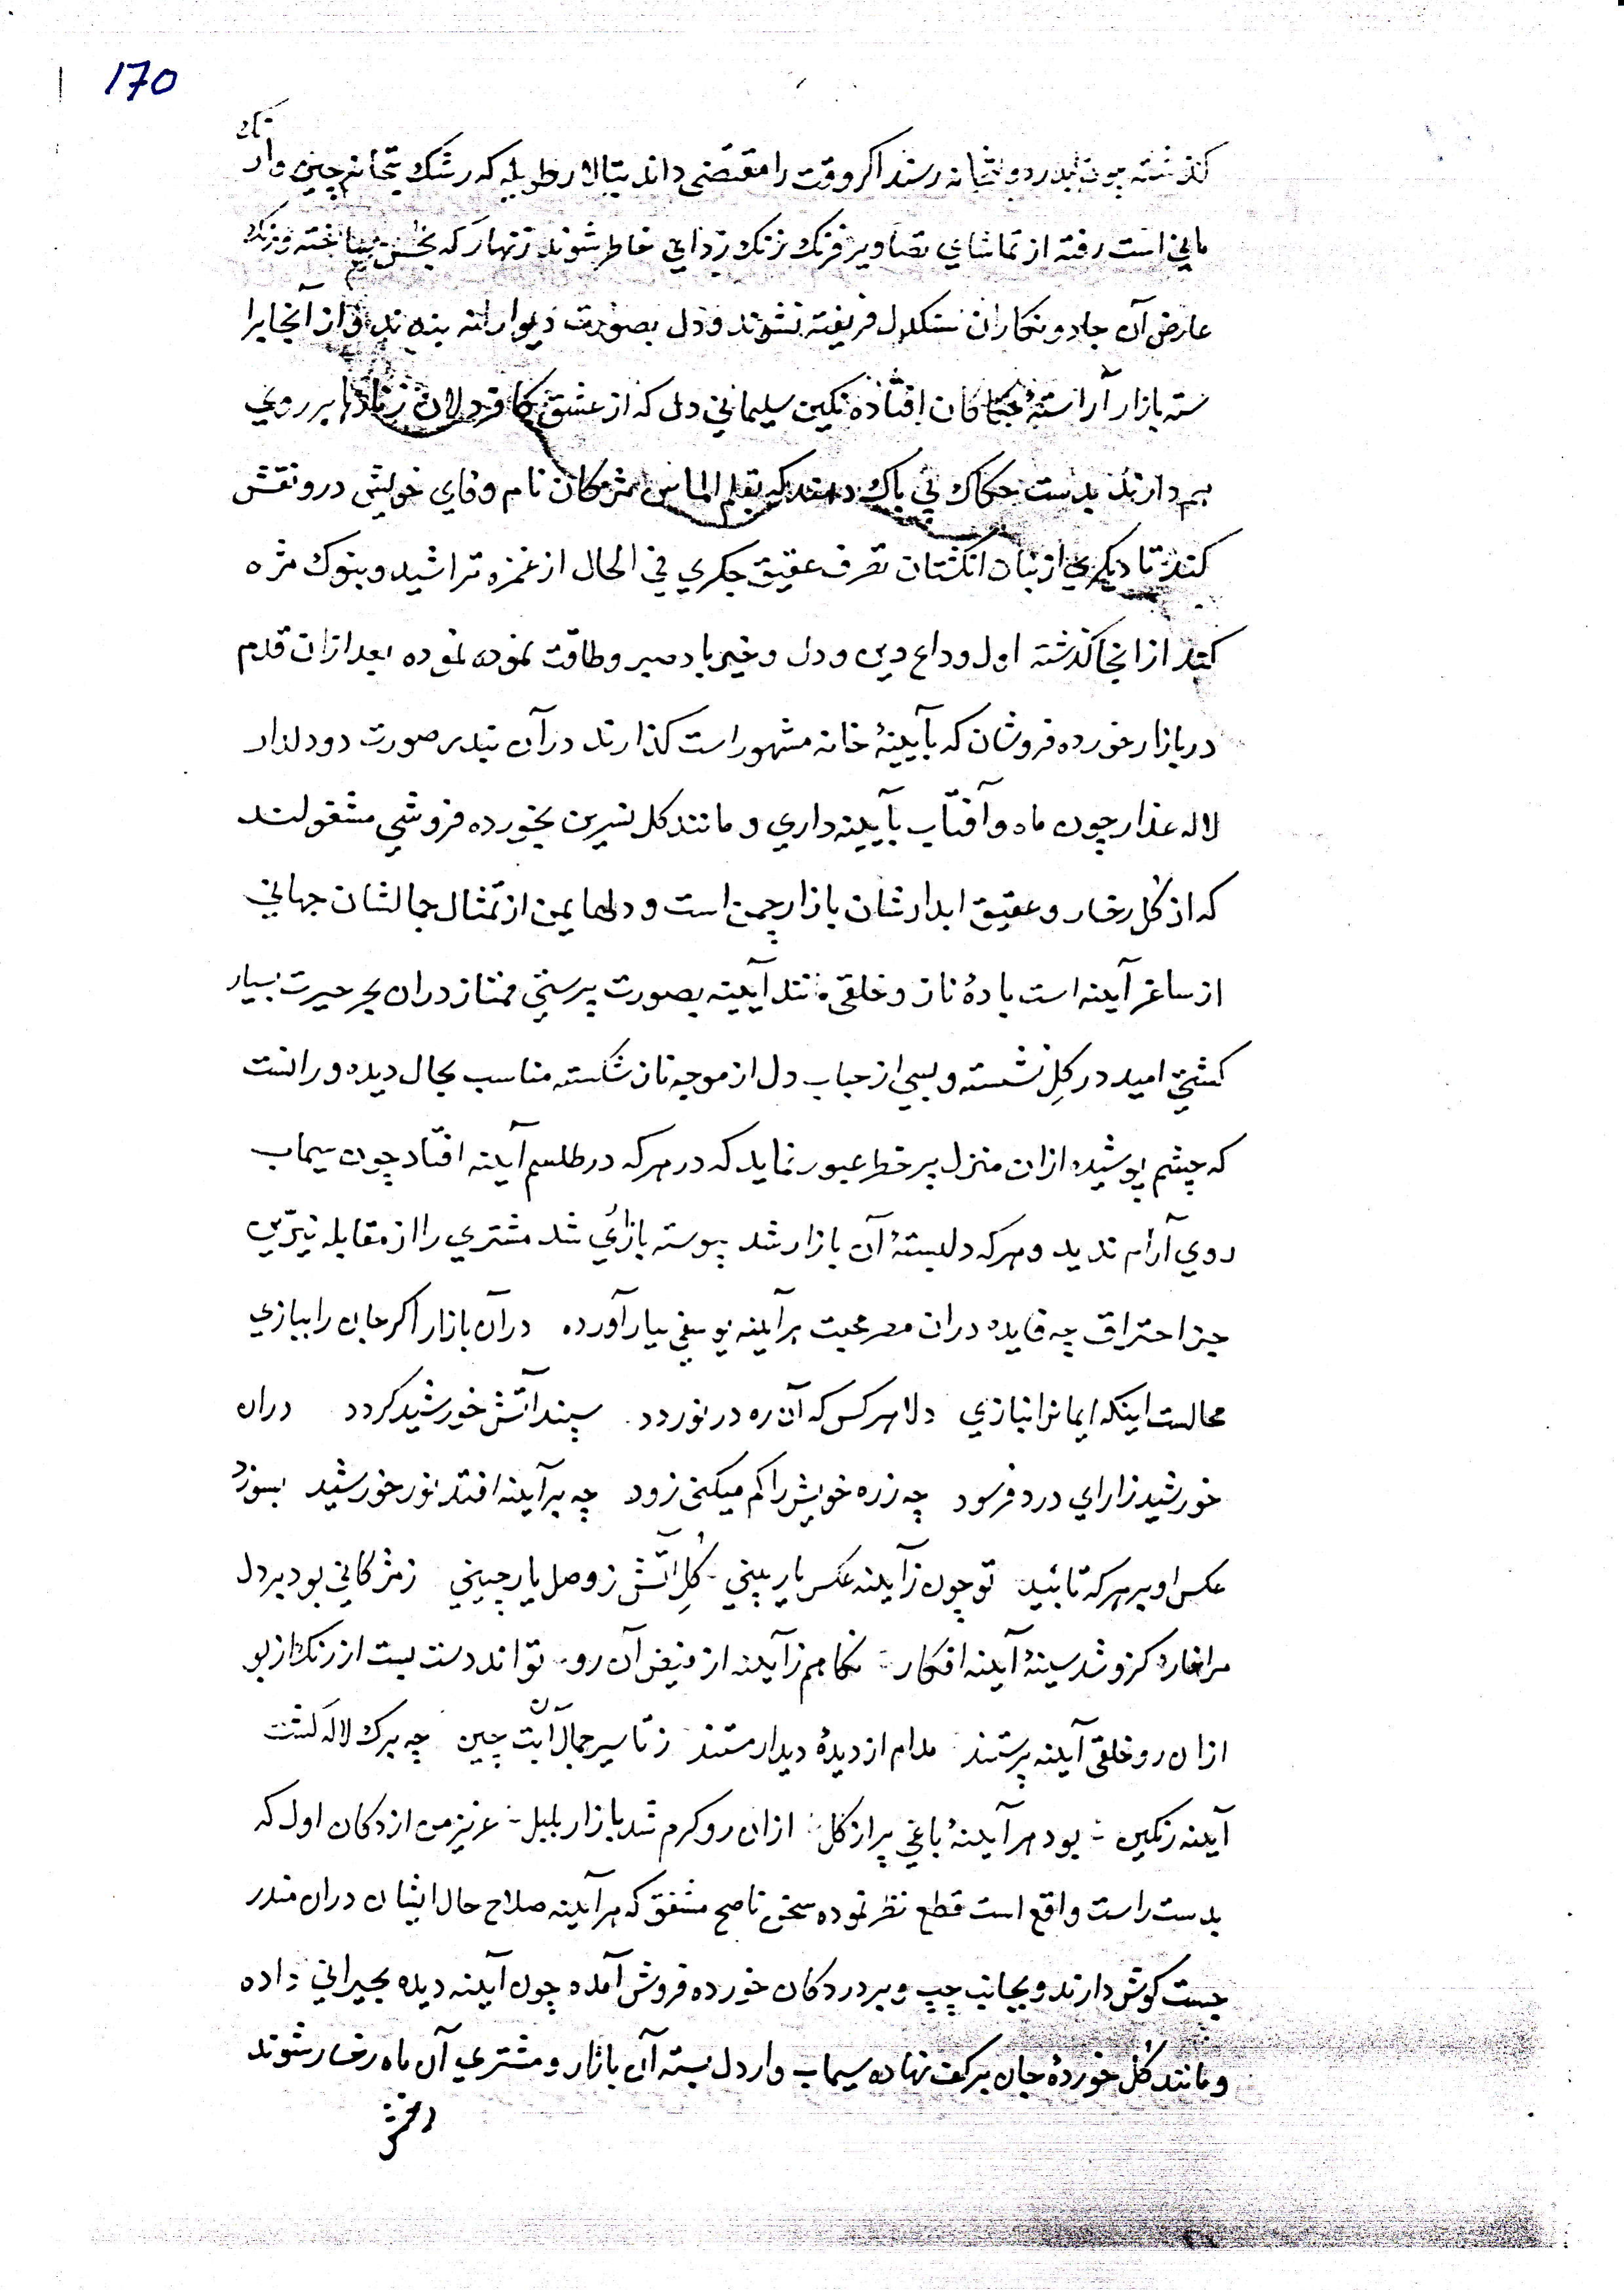 170
گذشته چون بدر دولتخانه رسند اگر وقت را مقتضی دانند بتالار طویله که رشک بتخانه چین وار تنک
مانی است رفته از تماشای تصاویر فرنک زنک زدای خاطر شوند زنهار که بحسن ساخته و رنک
عارض آن جادو نکاران سنکدل فریفته نشوند و دل بصورت دیوار نه بندند و از آنجا برا
سته بازار آراسته حکاکان افتاده نکین سلیمانی دل که از عشق کافر دلان زنارها بر روی
هم دارند بدست حکاک بی باک دهند که بقلم الماس مژکان نام وفای خویش درو نقش
کند تا دیکری از بنان انکشتان تصرف عقیق جکری فی الحال از غمزه تراشید و بنوک مژه
کند از انجا کذشته اول وداع دین و دل و خیرباد صبر و طاقت نموده نموده بعد ازان قدم
در بازار خورده فروشان که بآیینهٔ خانه مشهور است کذارند در آن بندر صورت دو دلدار
لاله عذار چون ماه و آفتاب بآیینه داری و مانند کل نسرین بخورده فروشی مشغولند
که از کل رخسار و عقیق ابدارشان بازار چمن است و دلهای من از تمثال جمالشان جهانی
از ساغر آینه است بادهٔ ناز و خلقی مانند آیینه بصورت پرستی ممتاز دران بحر حیرت بسیار
کشتی امید در کل نشسته و بسی از حباب دل از موجه ناز شکسته مناسب بحال دیده ور انست
که چشم پوشیده ازان منزل پر خطر عبور نماید که در هر که در طلسم آینه افتاد چون سیماب
روی آرام ندید و هر که دلبستهٔ آن بازار شد پیوسته بازاری شد مشتری را از مقابله نیّرین
جز احتراق چه فایده دران مصر محبت هر آینه یوسفی ببار آورده در آن بازار اکر جان را ببازی
محالست اینکه ایمانرا نبازی دلا هر کس که آن ره در نوردد سپند آتش خورشید کردد دران
خورشید زار ای درد فرسود چه ذره خویش را کم میکنی زود چه بر آینه افتد نور خورشید بسوزد
عکس او بر هر که تابید تو چون ز آینه عکس یار بینی کل آتش ز وصل یار چینی ز مژکانی بود بر دل
مرا خار کزو شد سینهٔ آینه افکار نکاهم ز آینه از فیض آن رو تواند دست بست از رنک از بو
ازان رو خلقی آینه پرستند مدام از دیدهٔ دیدار مستند ز تاثیر جمال آن بت چین چه برک لاله کشت
آینه رنکین بود هر آینهٔ باغی پر از کل ازان رو کرم شد بازار بلبل عزیز من از دکان اول که
بدست راست واقع است قطع نظر نموده سخن ناصح مشفق که هر آینه صلاح حال ایشان دران مندر
جست کوش دارند و بجانب چپ و بر در دکان خورده فروش آمده چون آینه دیده بحیرانی داده
و مانند کل خوردهٔ جان بر کف نهاده سیماب وار دل بسته آن بازار و مشتری آن ماه رخسار شوند